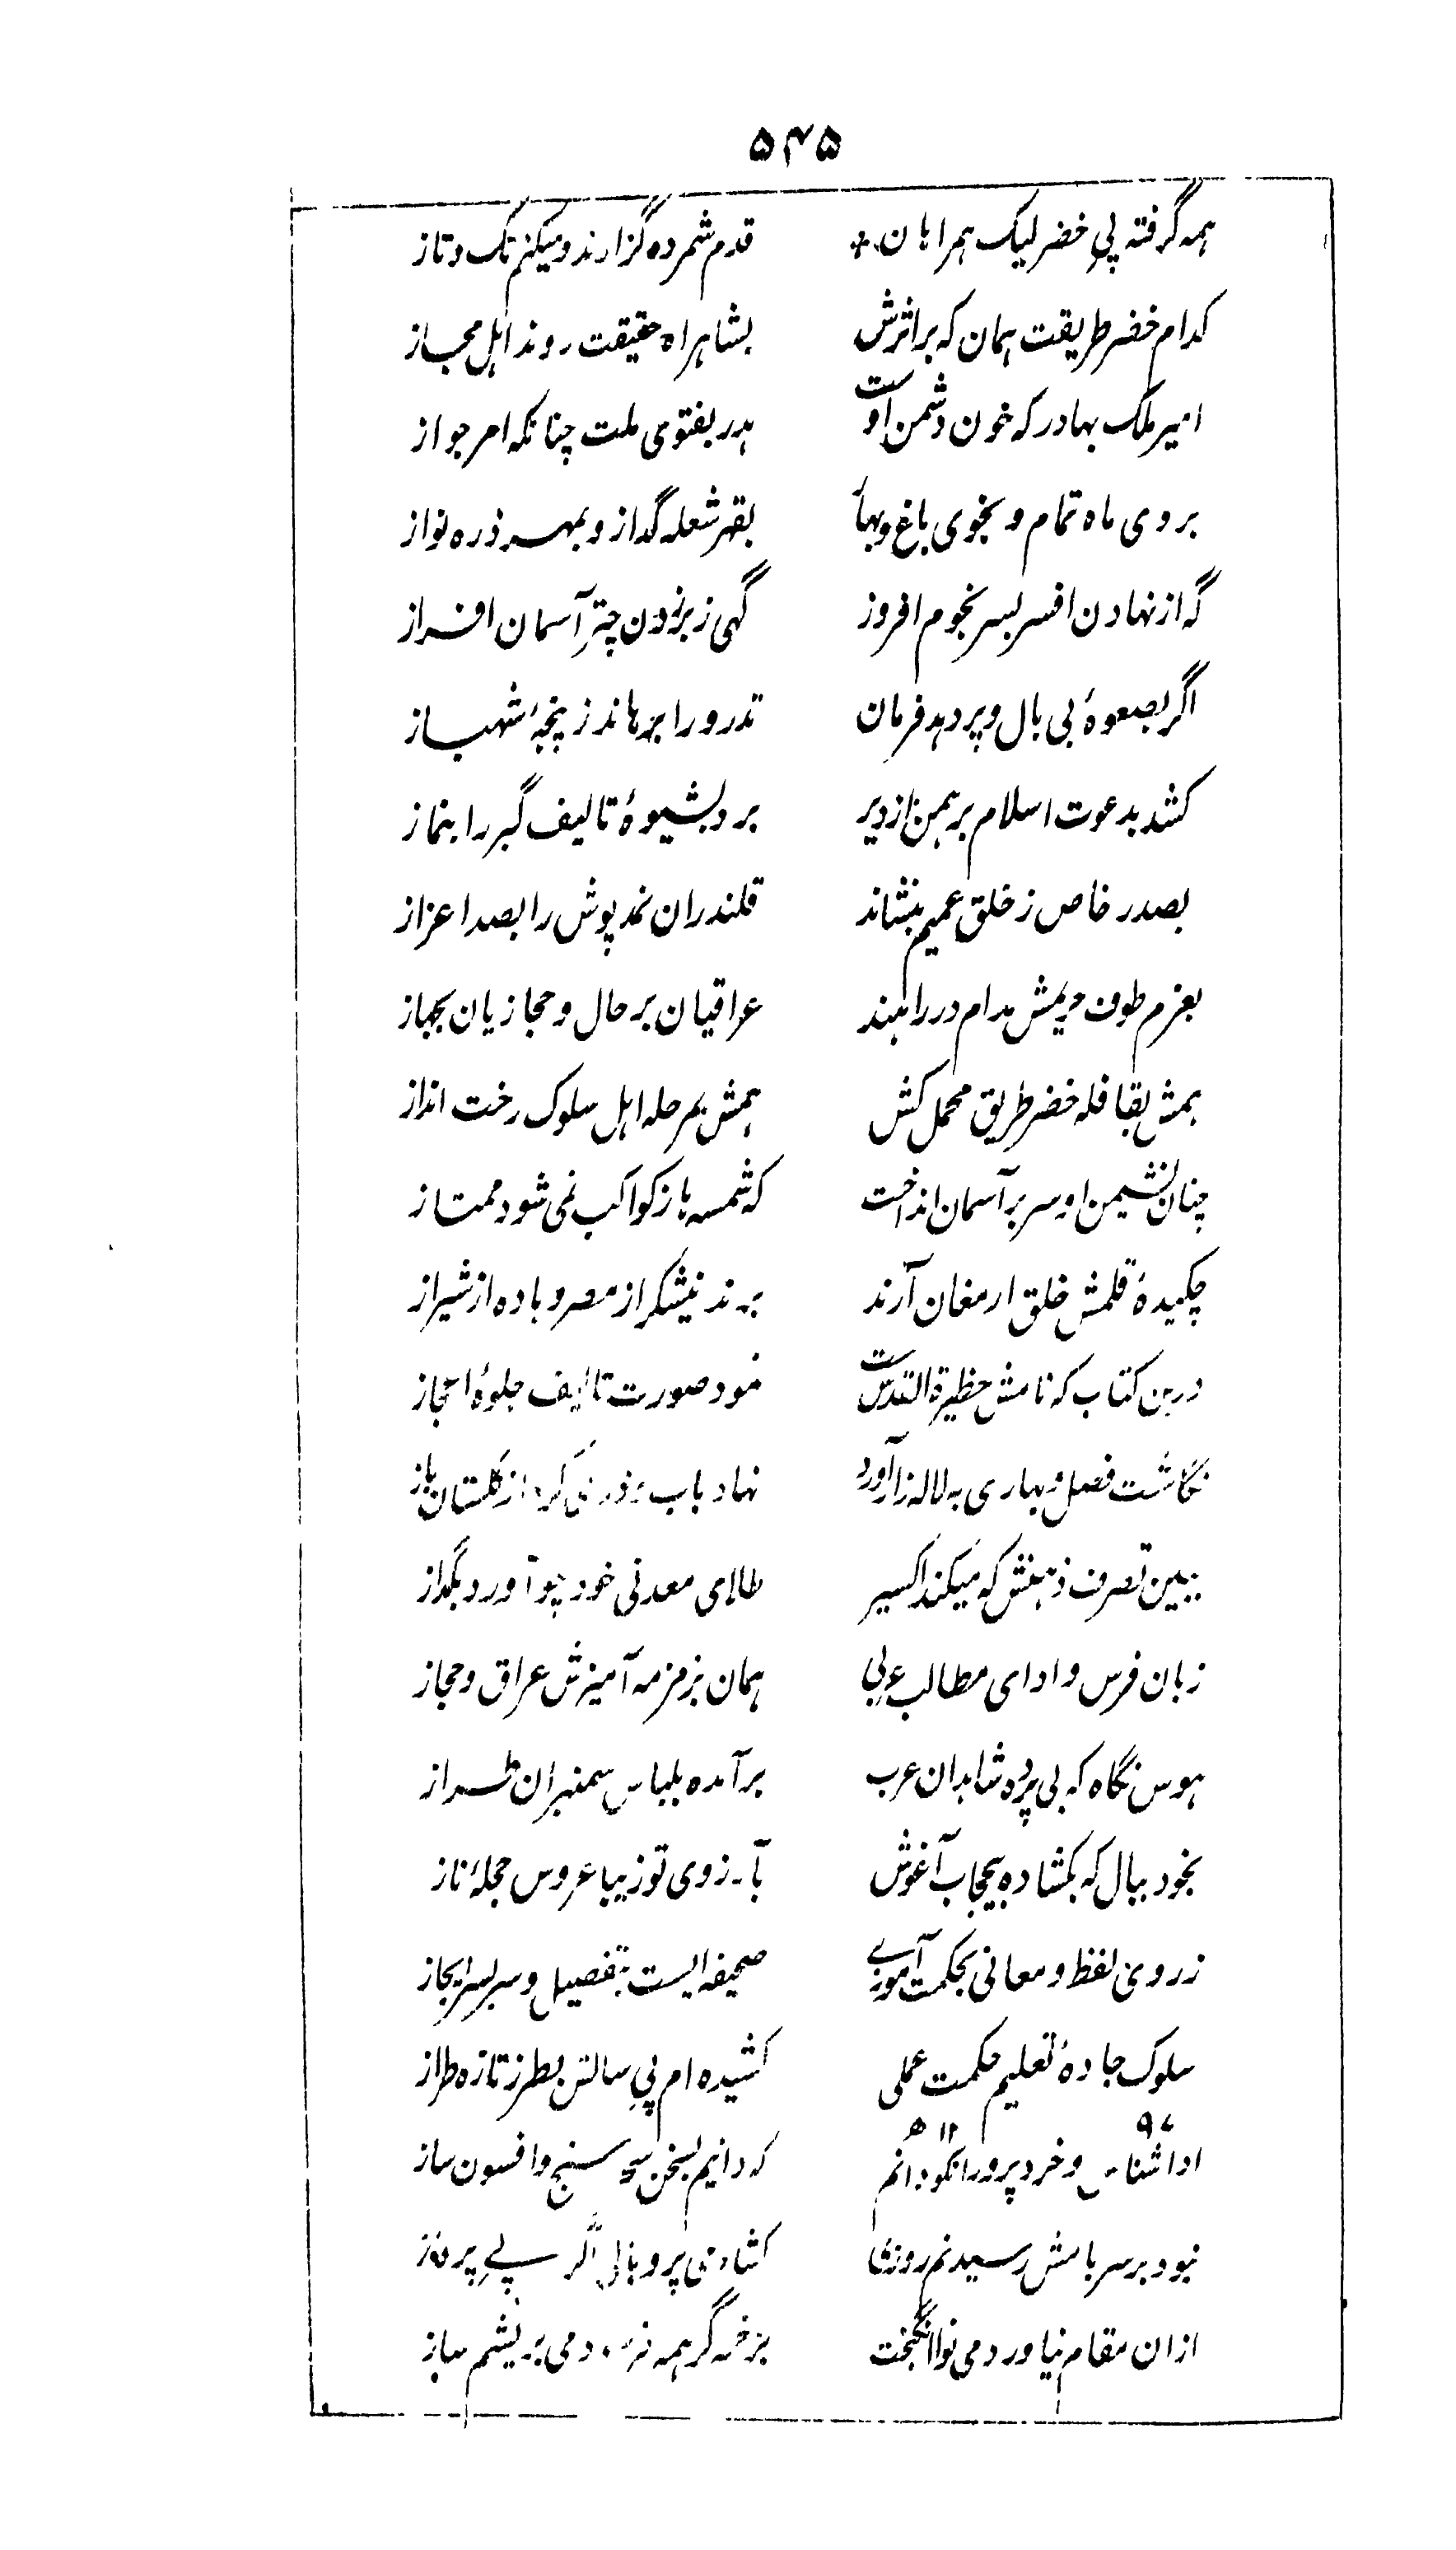 ۵۴۵
همه گرفته پی خضر لیک همراهان + قدم شمرده گزارند و میکنم تک و تاز
کدام خضر طریقت همان که بر اثرش بشاهراه حقیقت روند اهل مجاز
امیر ملک بهادر که خون دشمن اوست هدر بفتوی ملت چنانکه امر جواز
بروی ماه تمام و بخوی باغ و بهار بقهر شعله گداز و بمهر ذره نواز
گه از نهادن افسر بسر نجوم افروز گهی ز بر زدن چتر آسمان افراز
اگر بصعوهٔ بی بال و پر دهد فرمان تدرو را برهاند ز پنجهٔ شهباز
کشد بدعوت اسلام برهمن از دیر برد بشیوهٔ تالیف گبر را بنماز
بصدر خاص ز خلق عمیم بنشاند قلندران نمد پوش را بصد اعزاز
بعزم طوف حریمش مدام در راهند عراقیان بر حال و حجازیان بجهاز
همش بقافله خضر طریق محمل کش همش بمرحله اهل سلوک رخت انداز
چنان نشیمن او سر بر آسمان انداخت که شمسه‌ها ز کواکب نمی شود ممتاز
چکیدهٔ قلمش خلق ارمغان آرند برند نیشکر از مصر و باده از شیراز
درین کتاب که نامش حظیرة القدس ست نمود صورت تالیف جلوهٔ اعجاز
نگاشت فصل و بهاری به لاله زار آورد نهاد باب و از گلستان باز
ببین تصرف ذهنش که میکند اکسیر طلای معدنی خود چو آورد بگداز
زبان فرس و ادای مطالب عربی همان بزمزمه آمیزش عراق و حجاز
هوس نگاه که بی پرده شاهدان عرب برآمده بلباس سمنبران طراز
بخود ببال که بکشاده بیحجاب آغوش بآرزوی تو زیبا عروس حجلهٔ ناز
ز روی لفظ و معانی بحکمت آموزی صحیفه ایست بتفصیل و سربسر ایجاز
سلوک جادهٔ تعلیم حکمت عملی کشیده ام پی سالش بطرز تازه طراز
۹۷ ۱۱ ھ
ادا شناس و خرد پرور انکو دانم که دانیم بسخن سنج و افسون ساز
نبود بر سر بامش رسیدنم روزی کشادمی پر و بالی اگر پی پرواز
ازان مقام نیاوردمی نوا انگیخت بزخمه گر همه دمی بریشم ساز